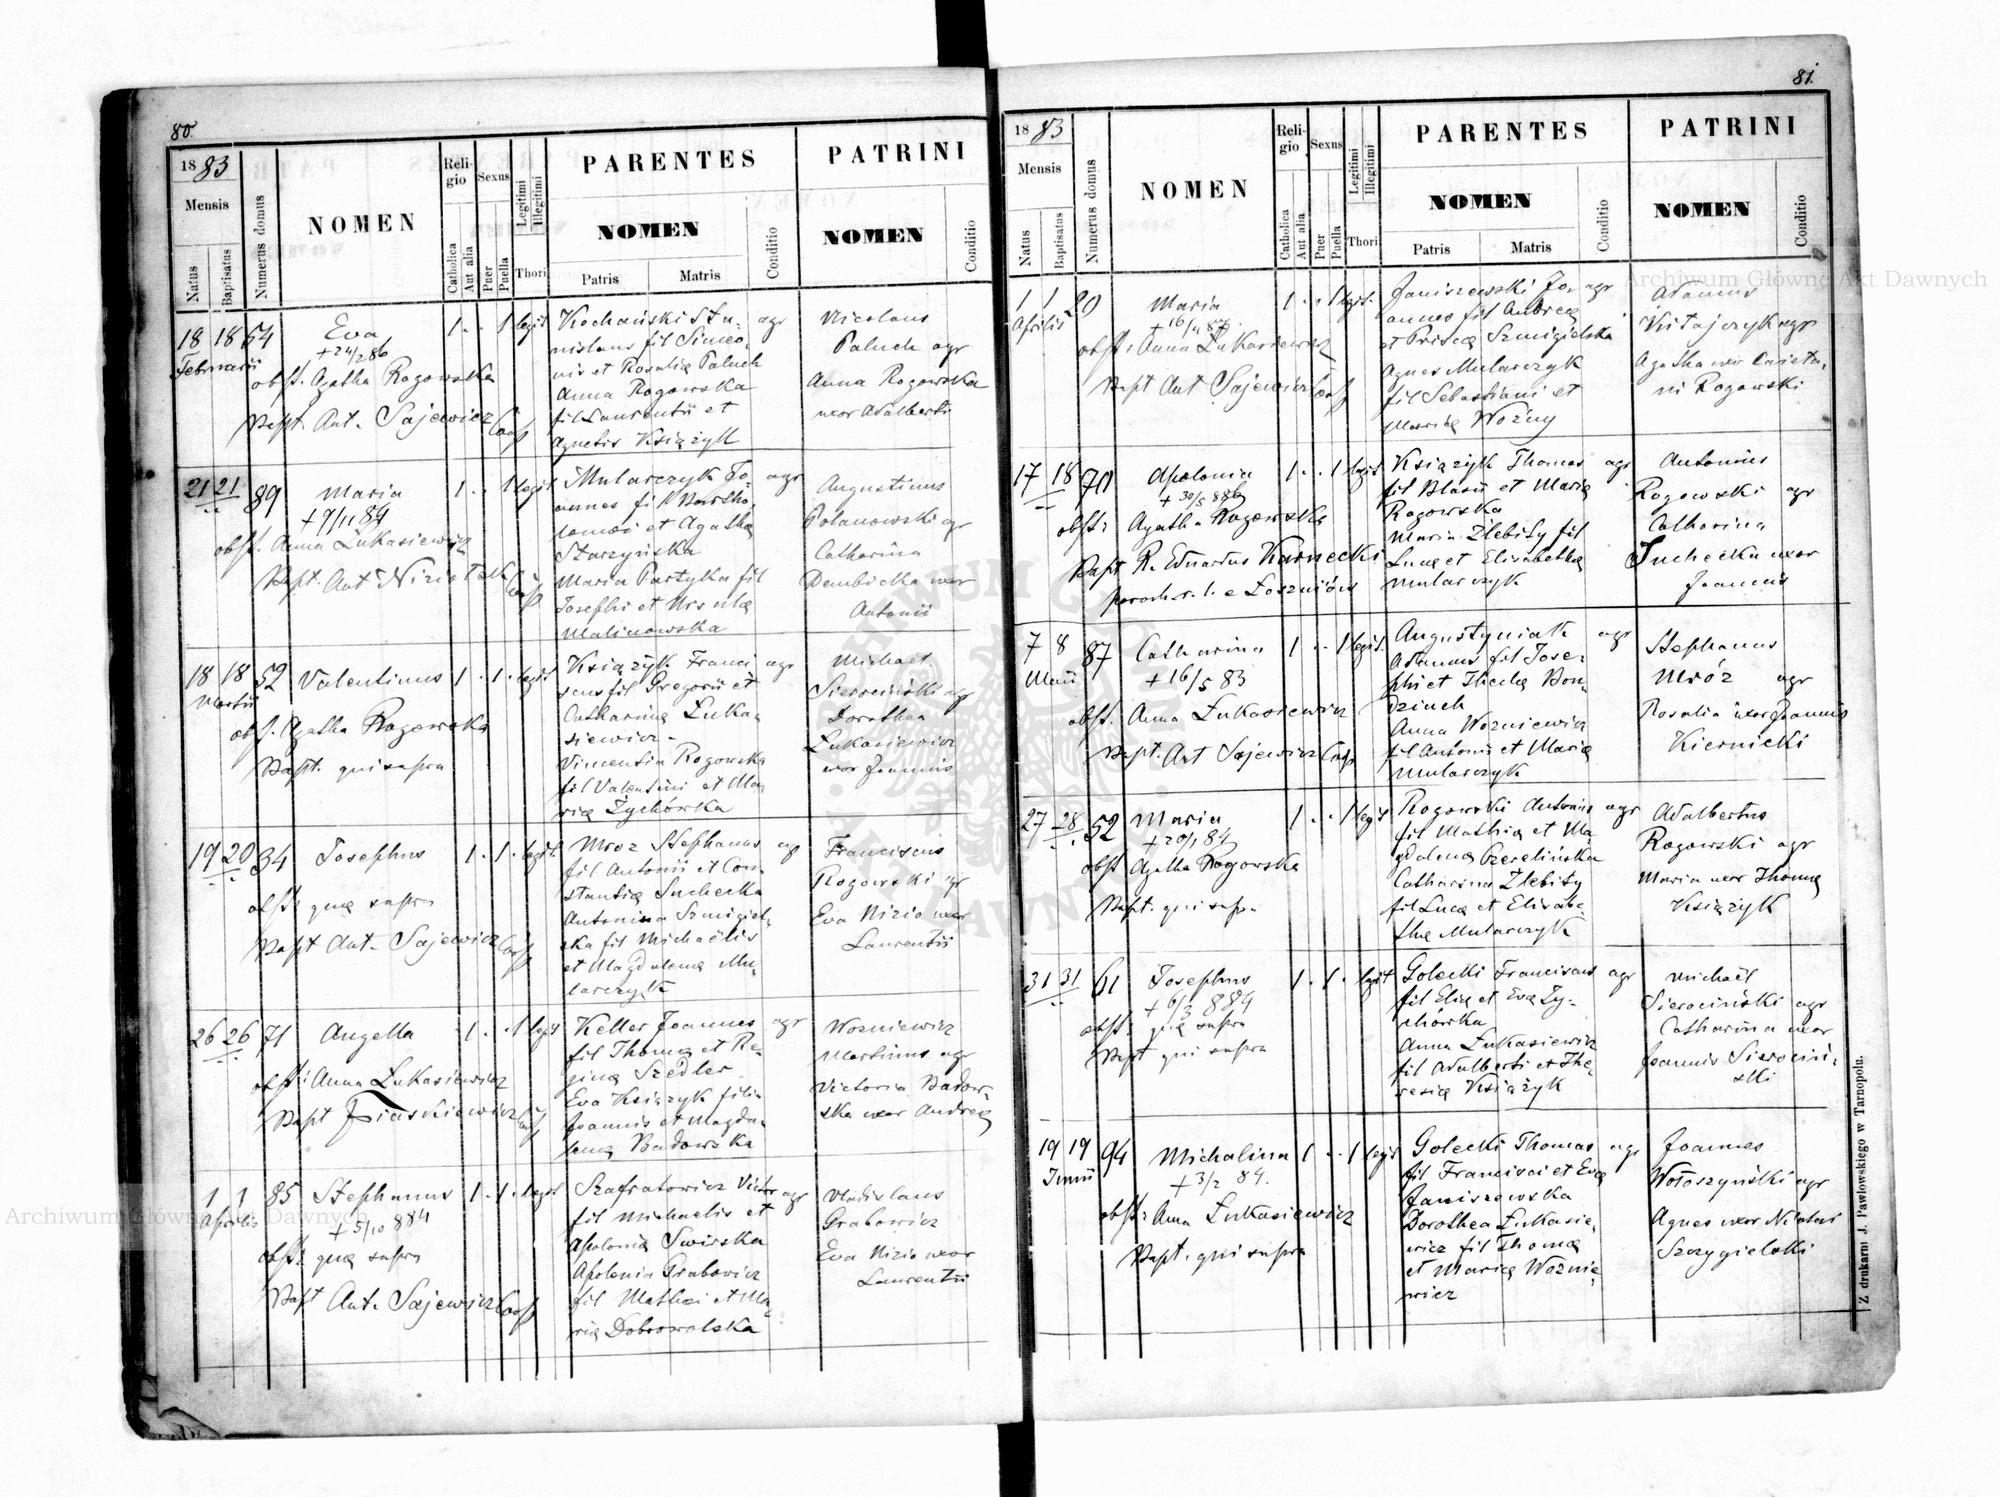 80.
1883
Mensis
Natus
Baptisatus
Numerus domus
NOMEN
Reli-
gio
Catholica
Aut alia
Sexus
Puer
Puella
Legitimi
Illegitimi
Thori
PARENTES
NOMEN
Patris
Matris
Conditio
PATRINI
NOMEN
Conditio
18 18 54 Eva 1 . . 1 legit
Februarii
+ 24/2 86
obst. Agatha Rogowska
Bapt. Ant. Sajewicz Coop
Kochański Sta- agr
nislaus fil Simeo-
nis et Rosalia Paluch
Anna Rogowska
fil Laurentii et
Agnetis Książyk
Nicolaus
Paluch agr
Anna Rogowska
uxor Adalberti
21 21 89 Maria 1 . . 1 legit
+ 9/11 84
obst. Anna Łukasiewicz
Bapt. Ant Niziołek Coop
Mularczyk Jo- agr
annes fil Bartho-
lomei et Agatha
Starzyńska
Maria Partyka fil
Josephi et Ursula
Malinowska
Augustinus
Polanowski agr
Catharina
Dembicka uxor
Antonii
18 18 52 Valentinus 1 . 1 . legit
Martii
obst. Agatha Rogowska
Bapt. qui supra
Książyk Franci agr
scus fil Gregorii et
Catharina Łuka-
siewicz -
Vincentia Rogowska
fil Valentini et Ma
ria Zychówka
Michael
Sierociński agr
Dorothea
Łukasiewicz
uxor Joannis
19 20 34 Josephus 1 . 1 . legit
obst: quæ supra
Bapt Ant. Sajewicz Coop
Mroz Stephanus agr
fil Antonii et Con-
stantia Suchecka
Antonina Szmigiel-
ska fil Michaëlis
et Magdalena Mu-
larczyk
Franciscus
Rogowski agr
Eva Nizio uxor
Laurentii
26 26 71 Angella 1 . . 1 legit
obst: Anna Łukasiewicz
Bapt Piaskiewicz Coop
Keller Joannes agr
fil Thoma et Re-
gina Szedler
Eva Książyk filia
Joannis et Magda-
lena Badowska
Wozniewicz
Martinus agr
Victoria Badow-
ska uxor Andreæ
1 1 85 Stephanus 1 . 1 . legit
Aprilis
+ 5/10 884
obst: quæ supra
Bapt Ant. Sajewicz Coop
Szafratowicz Victor agr
fil Michaelis et
Apolonia Swirska
Apolonia Grabowicz
fil Mathæi et Ma-
ria Dobrowolska
Vladislaus
Grabowicz
Eva Nizio uxor
Laurentii
81.
1883
Mensis
Natus
Baptisatus
Numerus domus
NOMEN
Reli-
gio
Catholica
Aut alia
Sexus
Puer
Puella
Legitimi
Illegitimi
Thori
PARENTES
NOMEN
Patris
Matris
Conditio
PATRINI
NOMEN
Conditio
1 1 20 Maria 1 . . 1 legit.
Aprilis
obst: Anna Łukasiewicz
Bapt Ant Sajewicz Coop
Janiszewski Jo- agr
annes fil Andreæ
et Prisca Szmigielska
Agnes Mularczyk
fil Sebastiani et
Maria Woźny
Adamus
Kitajczyk agr
Agatha uxor Caieta-
ni Rogowski
17 18 70 Apolonia 1 . . 1 legit
+ 30/5 886
obst: Agatha Rogowska
Bapt R. Eduardus Karnecki
paroch. r. l. e Łoszniów
Książyk Thomas agr
fil Blasii et Maria
Rogowska
Maria Zlebity fil
Luca et Elisabetha
Mularczyk
Antonius
Rogowski agr
Catharina
Suchecka uxor
Joannis
7 8 87 Catharina 1 . . 1 legit.
Maii
+ 16/5 83
obst. Anna Łukasiewicz
Bapt. Ant Sajewicz Coop
Augustyniak agr
Adamus fil Jose-
phi et Thecla Bon-
dziuch
Anna Wozniewicz
fil Antonii et Maria
Mularczyk
Stephanus
Mróz agr
Rosalia uxor Joannis
Kiernicki
27 28 52 Maria 1 . . 1 legit
+ 20/1 84
obst Agatha Rogowska
Bapt. qui supra
Rogowski Antonius agr
fil Mathia et Ma-
gdalena
Catharina Zlebity
fil Luca et Elisabe-
tha Mularczyk
Adalbertus
Rogowski agr
Maria uxor Thomæ
Książyk
31 31 61 Josephus 1 . 1 . legit
+ 6/3 884
obst: quæ supra
Bapt qui supra
Golecki Franciscus agr
fil Elia et Eva Zy-
chówka
Anna Łukasiewicz
fil Adalberti et The-
resia Książyk
Michaël
Sierociński agr
Catharina uxor
Joannis Sierociń-
ski
19 19 94 Michalina 1 . . 1 legit
Junii
+ 3/2 84.
obst: Anna Łukasiewicz
Bapt. qui supra
Golecki Thomas agr
fil Francisci et Eva
Janiszewska
Dorothea Łukasie-
wicz fil Thoma
et Maria Woznie-
wicz
Joannes
Wołoszyński agr
Agnes uxor Nicolai
Szczygielski
Z drukarni J. Pawłowskiego w Tarnopolu.
Archiwum Główne Akt Dawnych
Archiwum Główne Akt Dawnych
ARCHIWUM GŁÓWNE
AKT DAWNYCH